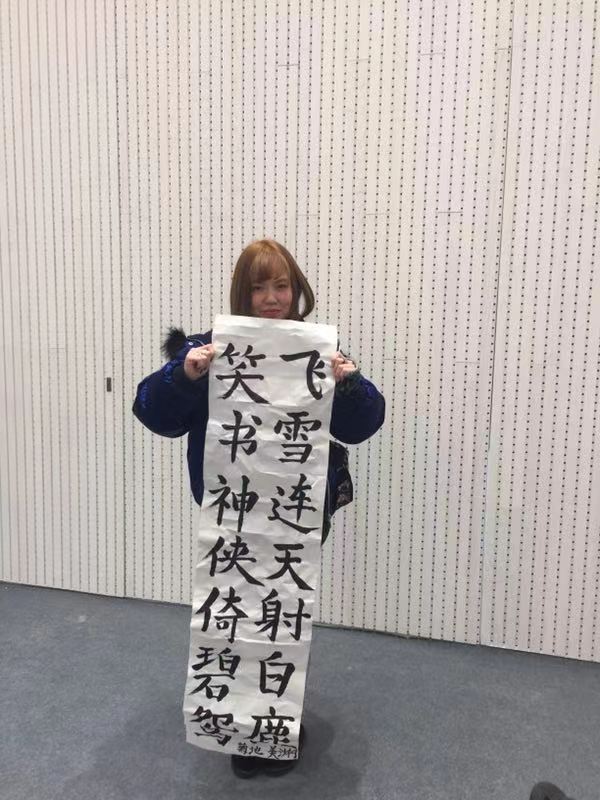 飞雪连天射白鹿
笑书神侠倚碧鸳
菊地 美沙樹